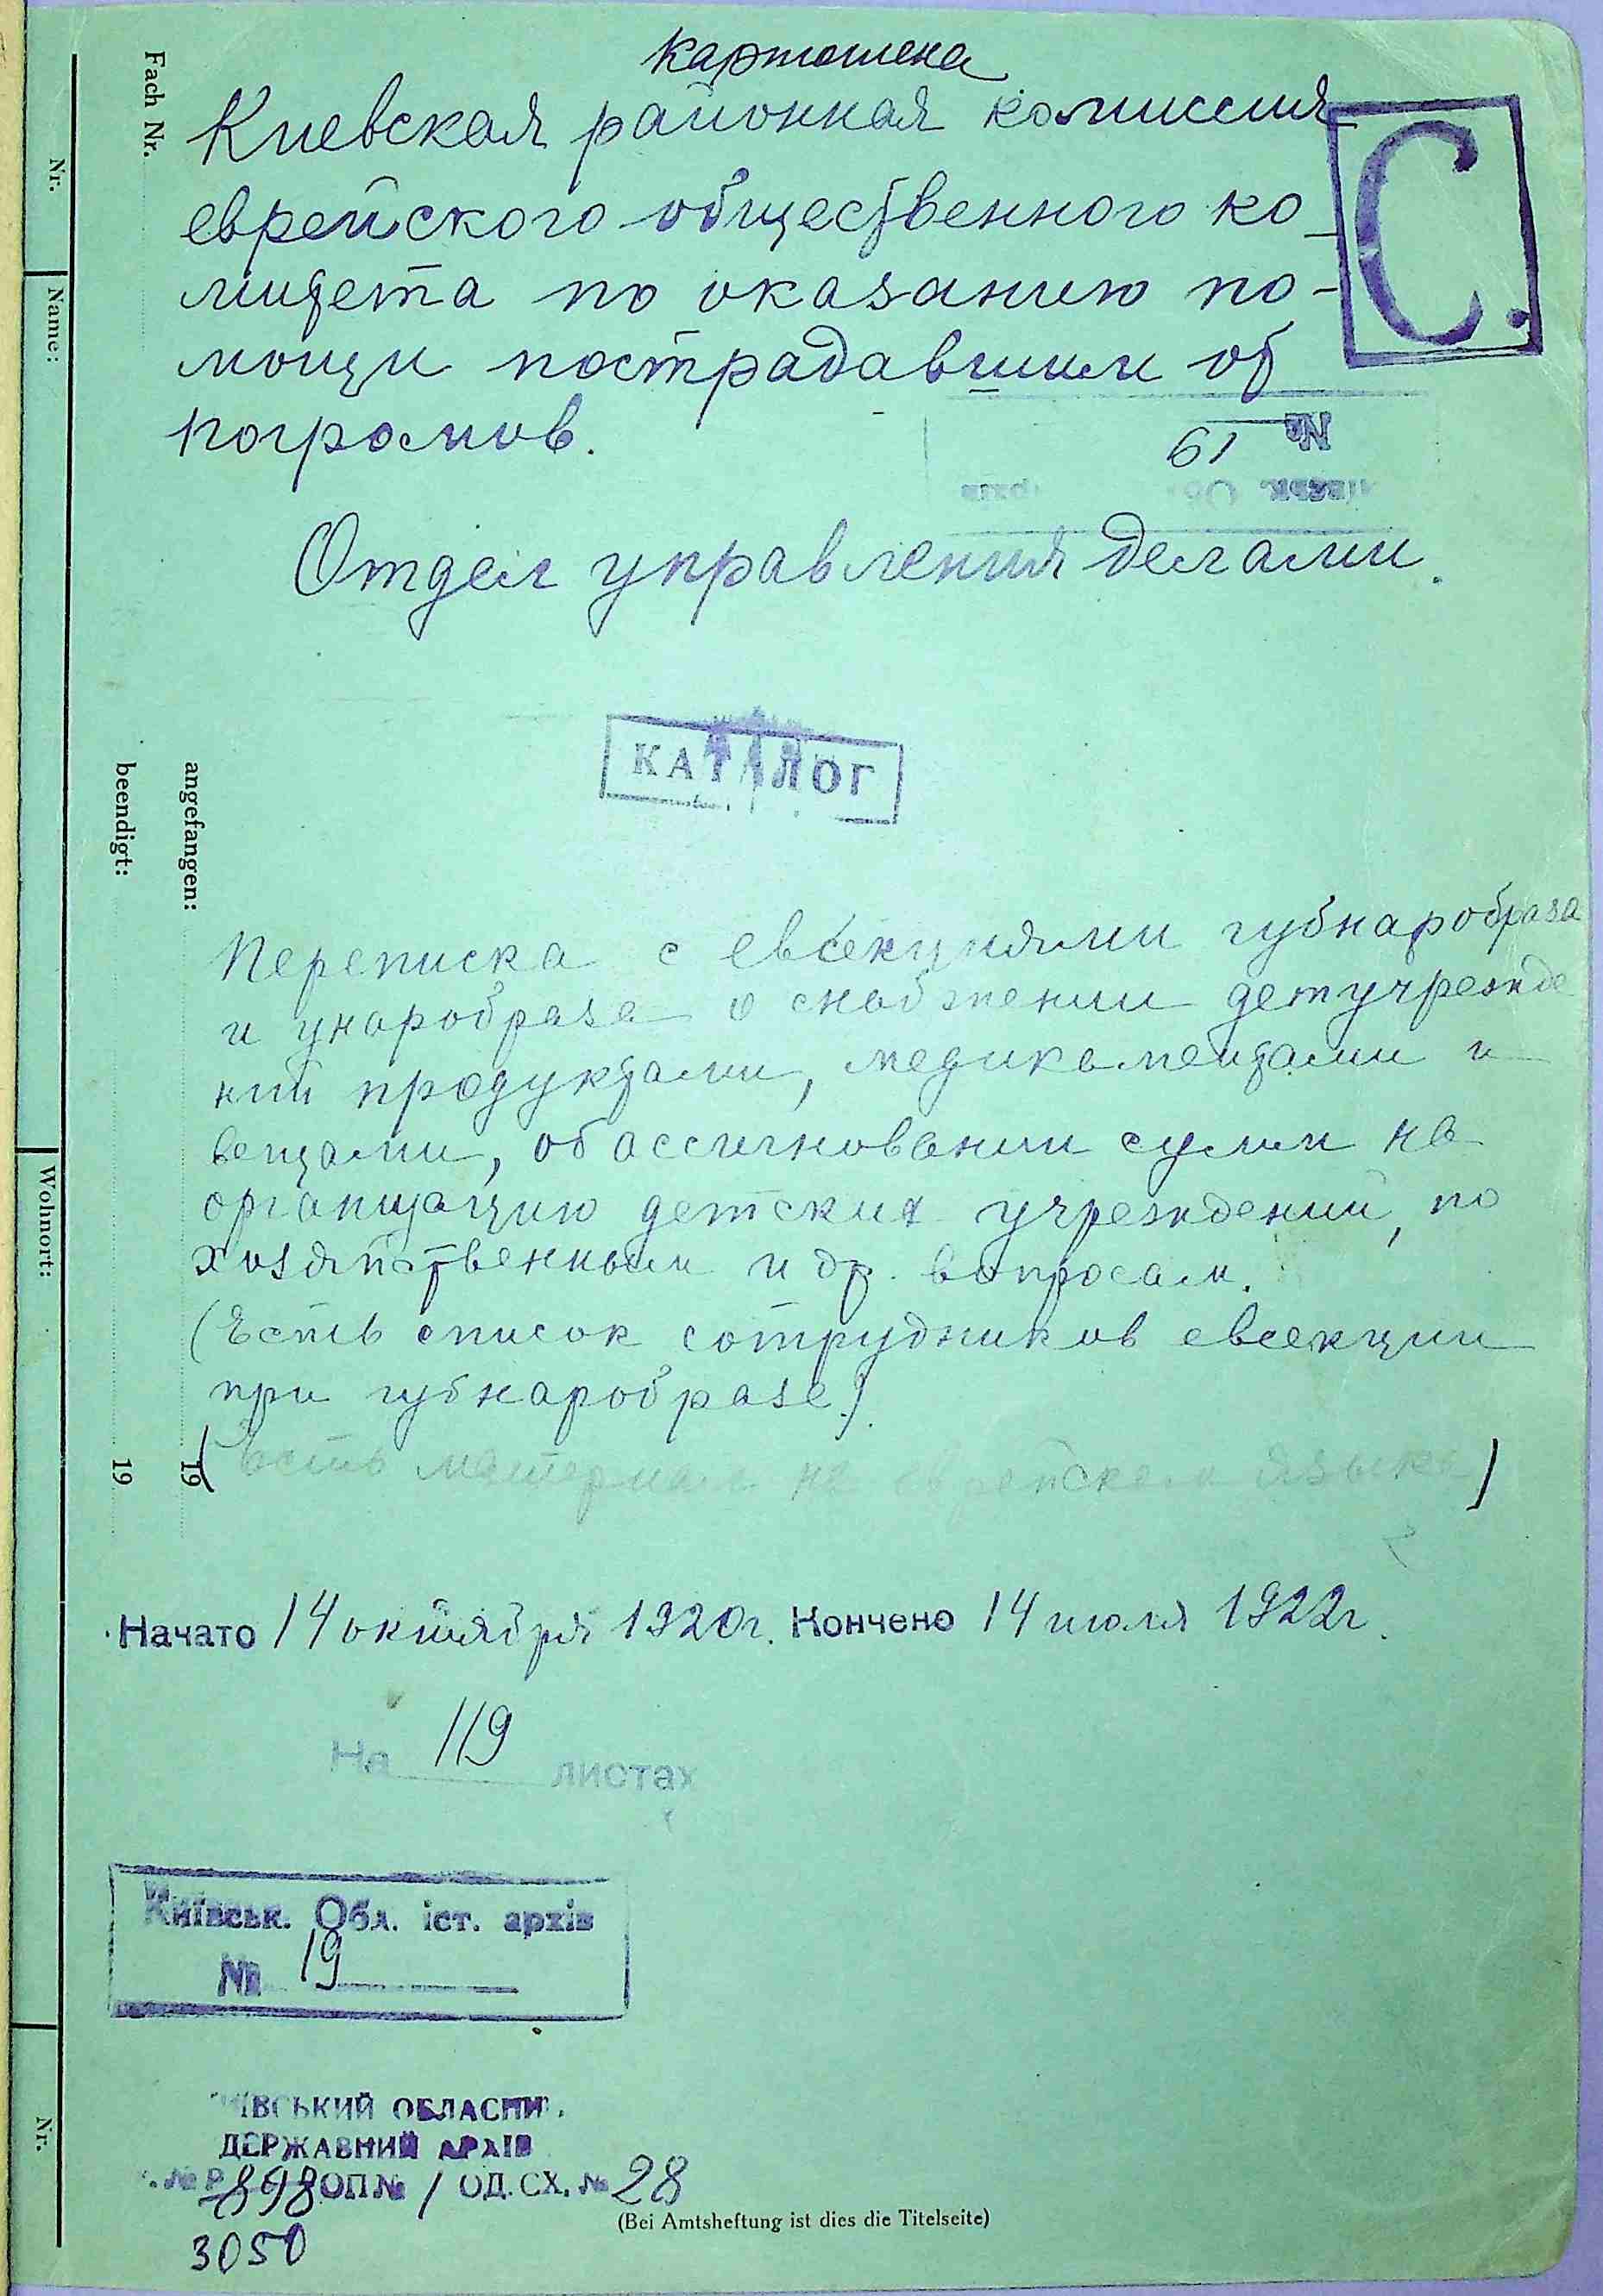 картотека
Киевская районная комиссия
еврейского общественного ко-
митета по оказанию по-
мощи пострадавшим от
погромов.
С.
№ 19
Отдел управления делами.
КАТАЛОГ
Переписка с евсекциями губнаробраза
и унаробраза о снабжении детучрежде
ний продуктами, медикаментами и
вещами, об ассигновании сумм на
организацию детских учреждений, по
хозяйственным и др. вопросам.
(Есть список сотрудников евсекции
при губнаробразе).
(Есть материал на еврейском языке)
Начато 14 октября 1920г. Кончено 14 июля 1922г.
На 119 листах
Київськ. Обл. іст. архів
№ 19
ДЕРЖАВНИЙ АРХІВ
№ Р 898 ОП № 1 ОД. СХ. № 28
3050
(Bei Amtsheftung ist dies die Titelseite)
Fach Nr.
Nr.
Name:
Wohnort:
Nr.
angefangen: 19
beendigt: 19